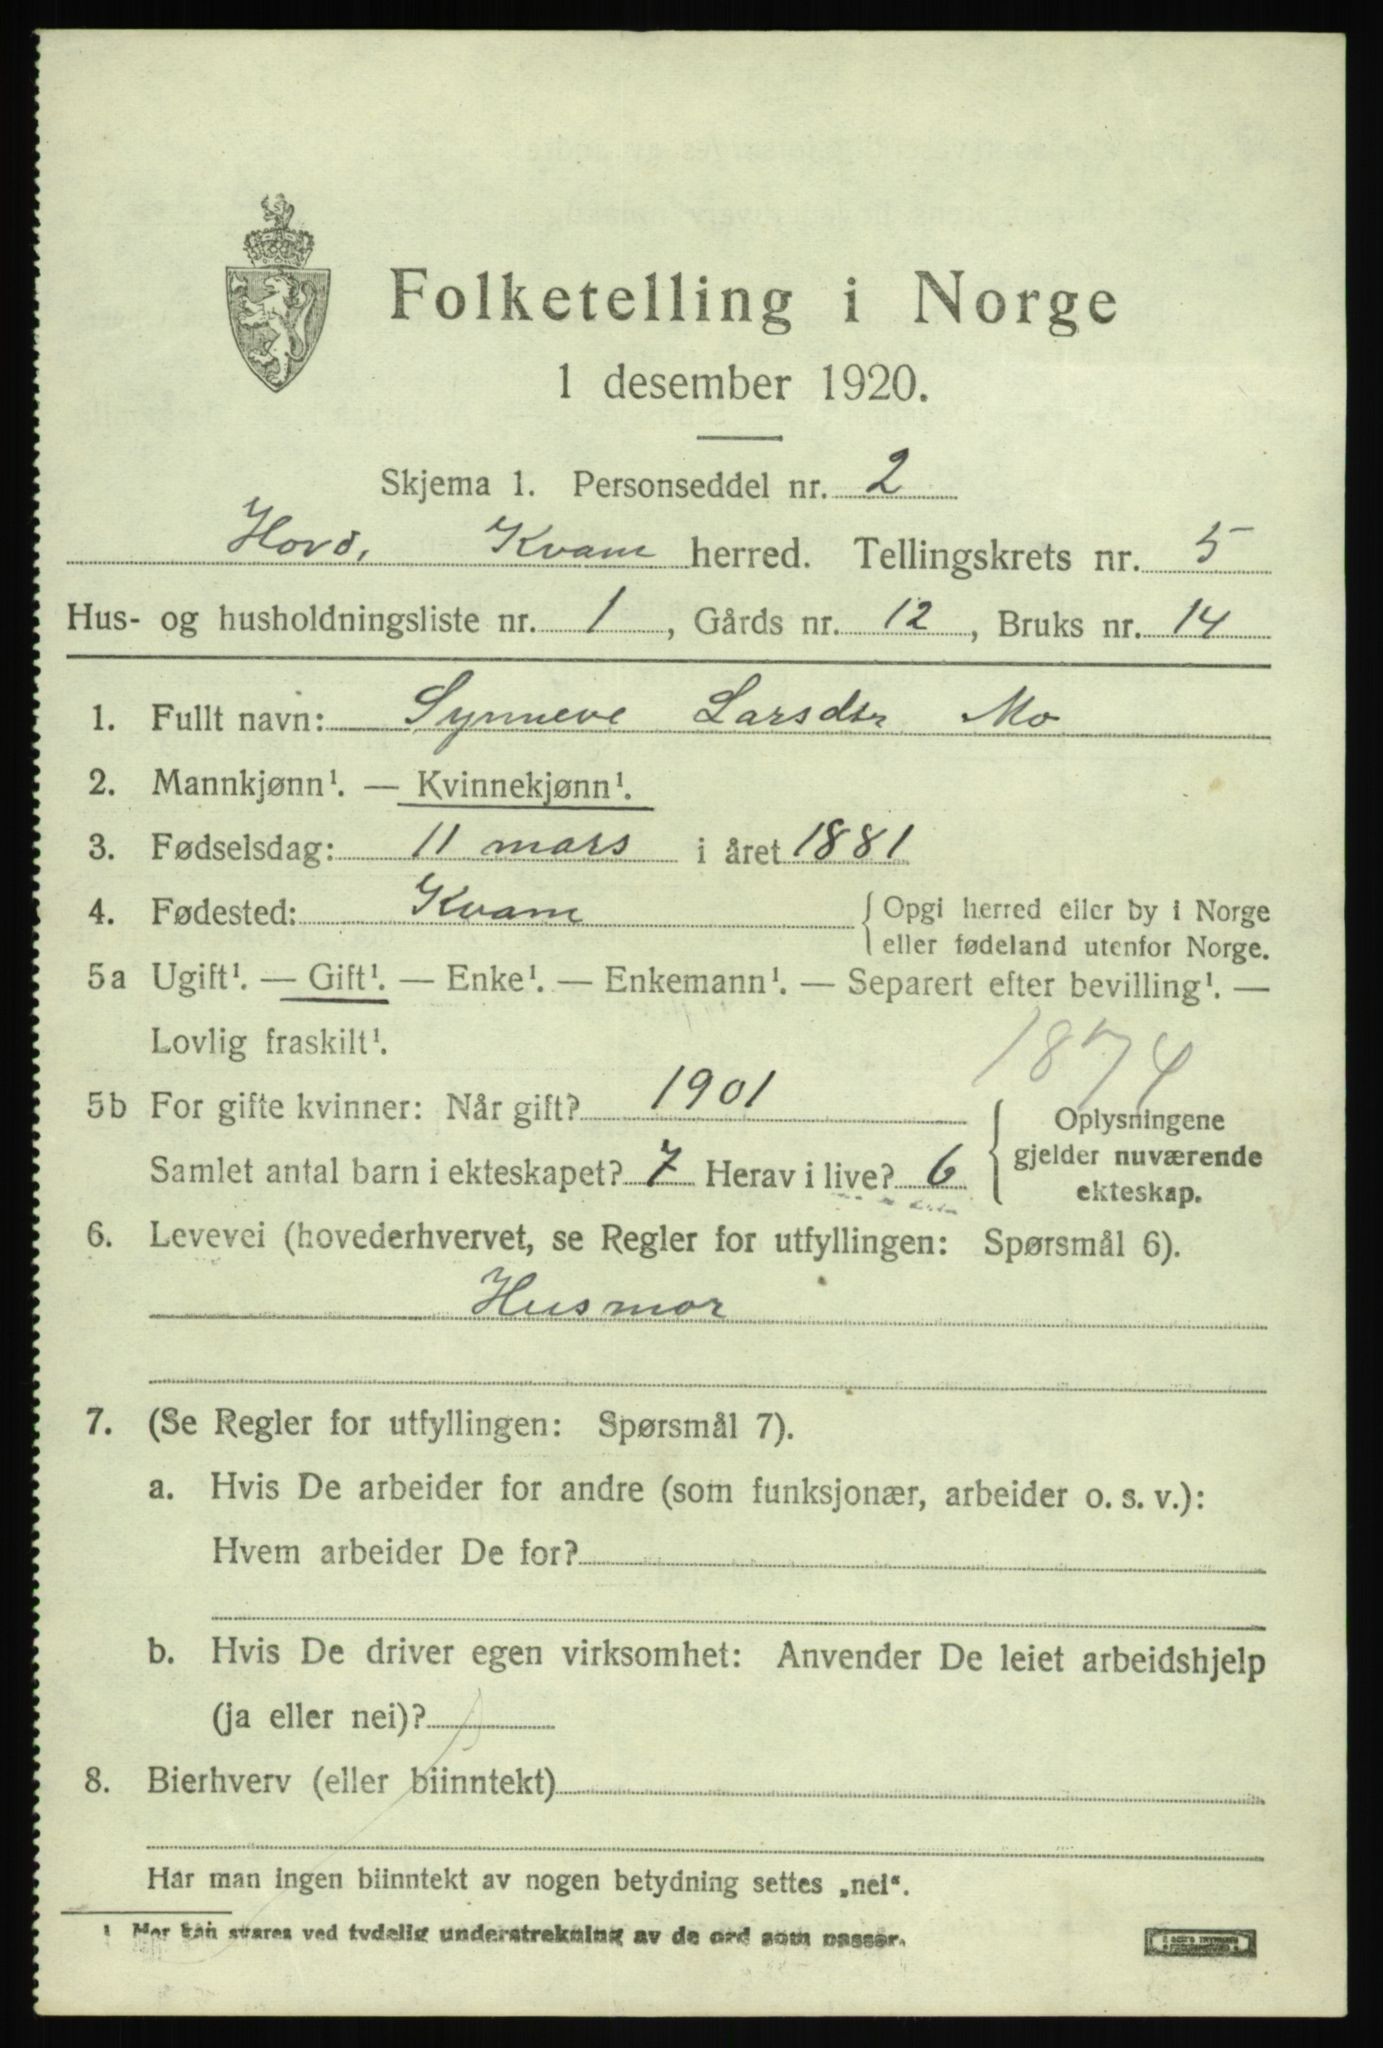 Folketelling i Norge
1 desember 1920.
Skjema 1. Personseddel nr. 2
Hord, Kvam herred. Tellingskrets nr. 5
Hus- og husholdningsliste nr. 1, Gårds nr. 12, Bruks nr. 14
1. Fullt navn: Synneve Larsdtr Mo
2. Mannkjønn¹. — Kvinnekjønn¹.
3. Fødselsdag: 11 mars i året 1881
4. Fødested: Kvam { Opgi herred eller by i Norge
eller fødeland utenfor Norge.
5a Ugift¹. — Gift¹. — Enke¹. — Enkemann¹. — Separert efter bevilling¹. —
Lovlig fraskilt¹.
1874
5b For gifte kvinner: Når gift? 1901 { Oplysningene
gjelder nuværende
ekteskap.
Samlet antal barn i ekteskapet? 7 Herav i live? 6
6. Levevei (hovederhvervet, se Regler for utfyllingen: Spørsmål 6).
Husmor
7. (Se Regler for utfyllingen: Spørsmål 7).
a. Hvis De arbeider for andre (som funksjonær, arbeider o. s. v.):
Hvem arbeider De for?
b. Hvis De driver egen virksomhet: Anvender De leiet arbeidshjelp
(ja eller nei)?
8. Bierhverv (eller biinntekt)
Har man ingen biinntekt av nogen betydning settes „nei“.
¹ Her kan svares ved tydelig understrekning av de ord som passer.